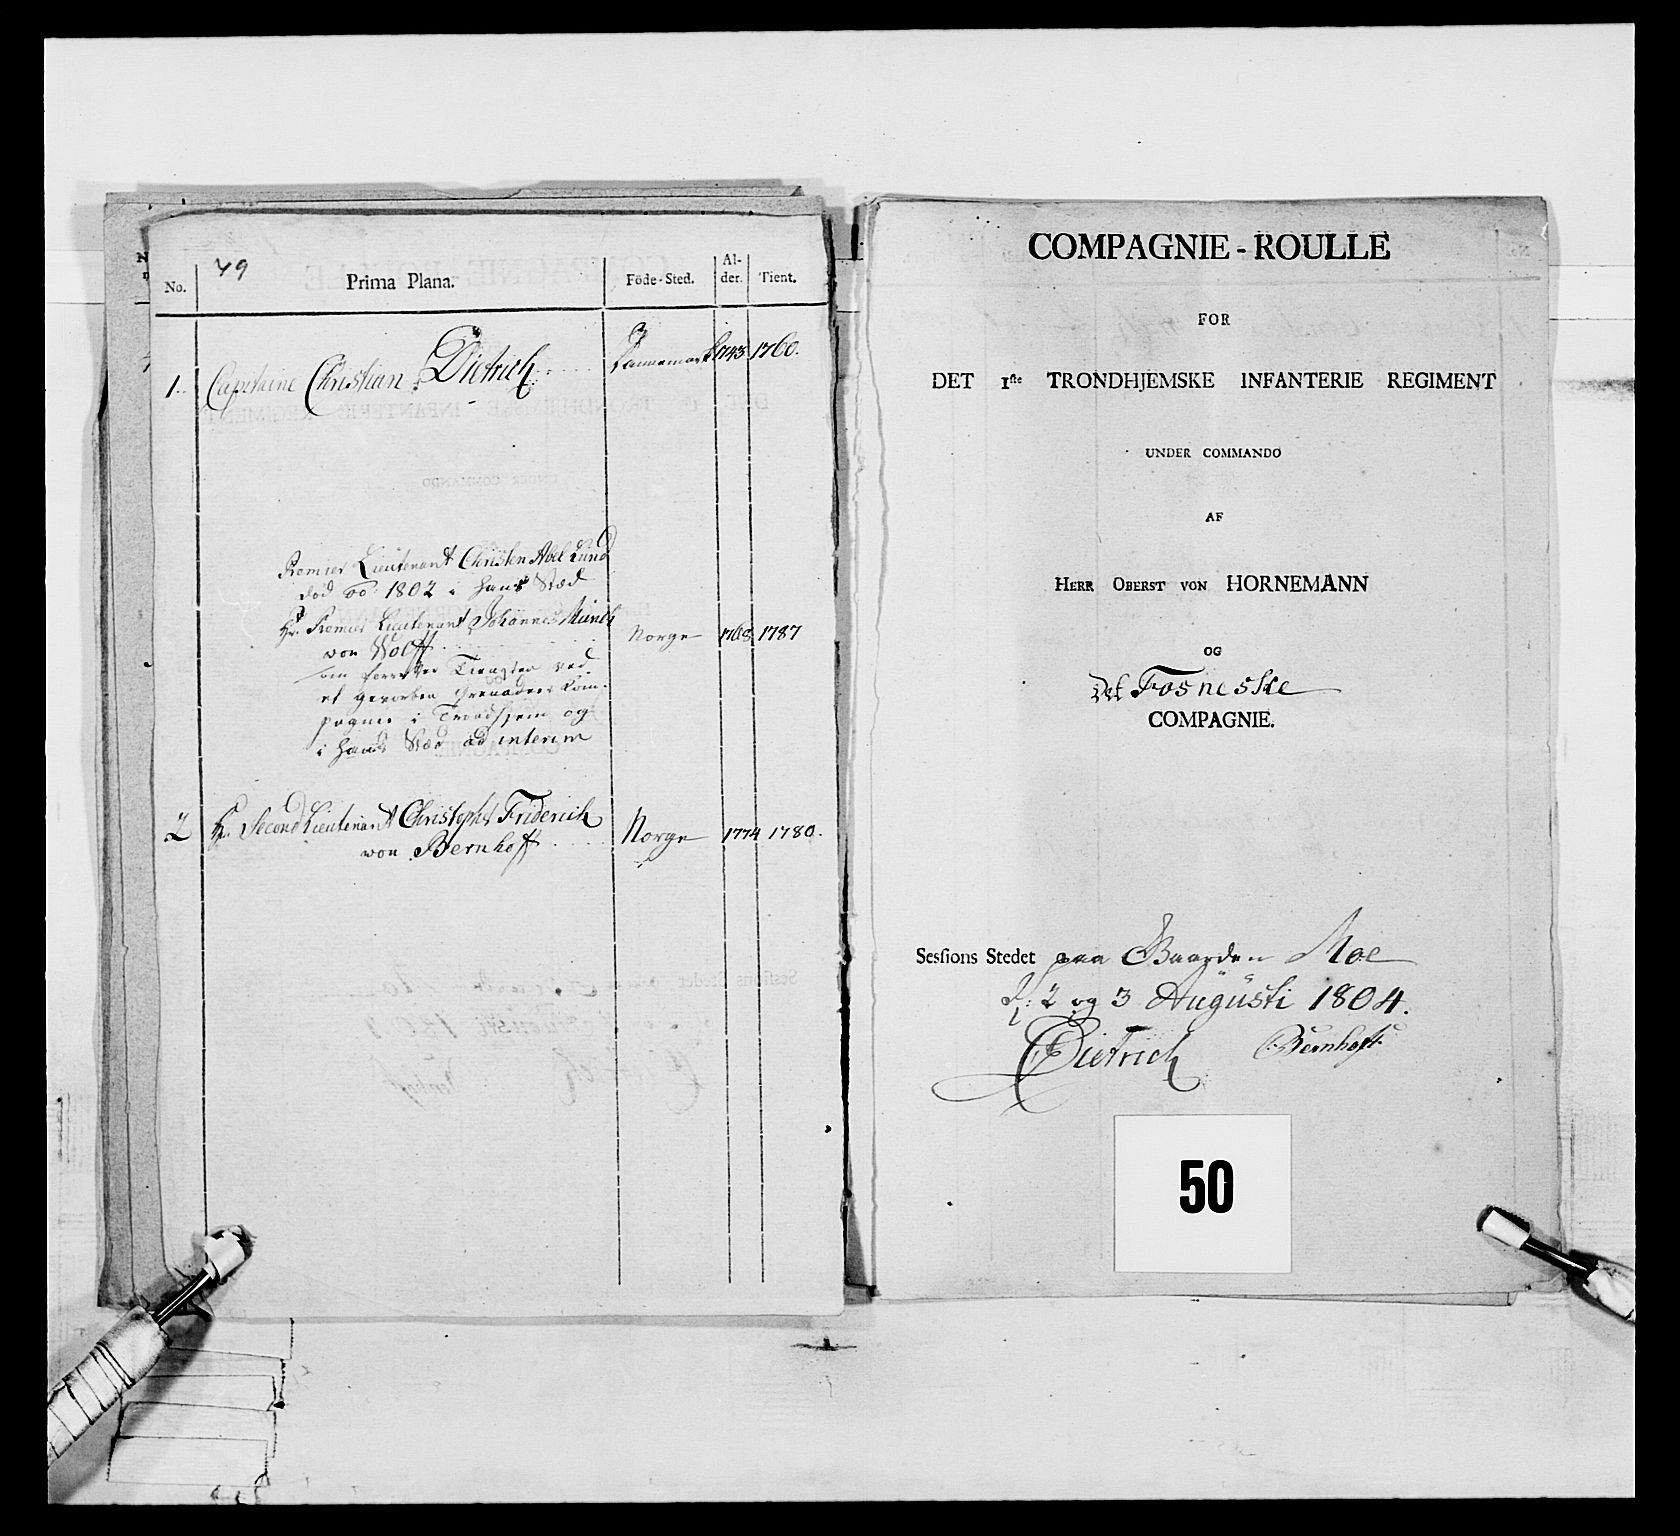 49
No. Prima Plana. Föde-Sted. Al-der. Tient.
1. Capitaine Christian Dietrich Dannemark 1743 1760.
Premier Lieutenant Christen Abel Lund
död 1802 i hans Stæd
Hr. Premier Lieutenant Johannes Münch Norge 1768 1787
von Wolff
om forretter Tienesten ved
et gevorben Grenadeer Kom-
pagnie i Trondhjem og
i hans Stæd ad interim
2 Hr. Second Lieutenant Christopher Friderich Norge 1774 1780.
von Bernhoft
COMPAGNIE-ROULLE
FOR
DET 1ste TRONDHJEMSKE INFANTERIE REGIMENT
UNDER COMMANDO
AF
HERR OBERST VON HORNEMANN
OG
Det Fosneske
COMPAGNIE.
Sessions Stedet paa Gaarden Moe
d: 2 og 3 Augüsti 1804.
Dietrich C. Bernhoft
50